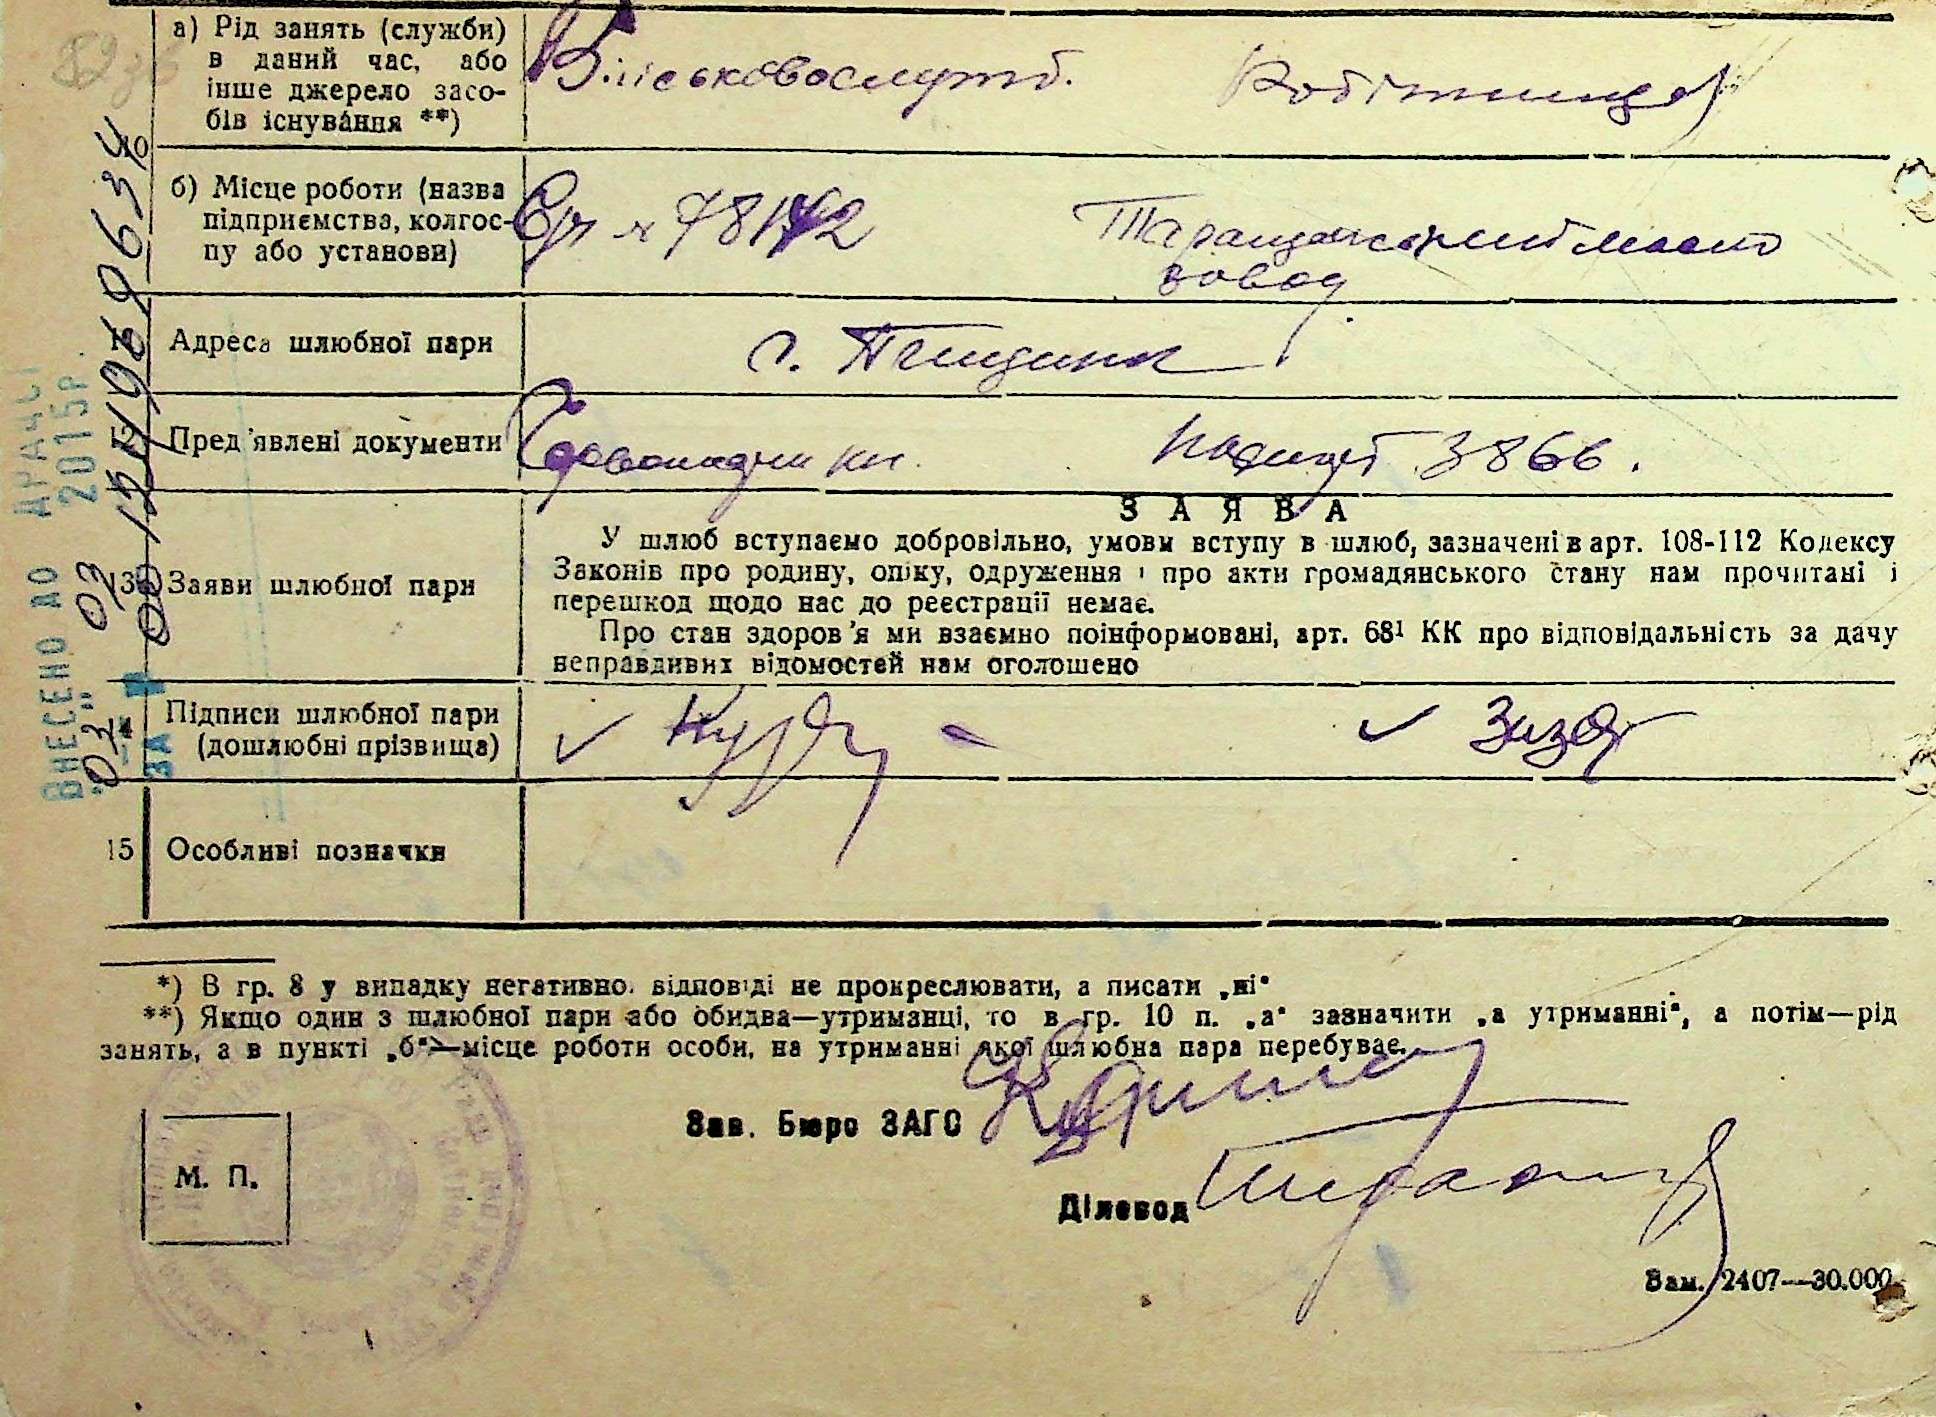 а) Рід занять (служби)
в даний час, або
інше джерело засо-
бів існування **)
Військовослужб.
Робітниця
10
б) Місце роботи (назва
підприємства, колгос-
пу або установи)
Таращанский масло
завод
Адреса шлюбної пари
12
Пред'явлені документи
3866.
ЗАЯВА
13
Заяви шлюбної пари
У шлюб вступаємо добровільно, умови вступу в шлюб, зазначені в арт. 108-112 Кодексу
Законів про родину, опіку, одруження і про акти громадянського стану нам прочитані і
перешкод щодо нас до реєстрації немає.
Про стан здоров'я ми взаємно поінформовані, арт. 68¹ КК про відповідальність за дачу
неправдивих відомостей нам оголошено
Підписи шлюбної пари
(дошлюбні прізвища)
15
Особливі позначки
*) В гр. 8 у випадку негативно. відповіді не прокреслювати, а писати „ні“
**) Якщо один з шлюбної пари або обидва—утриманці, то в гр. 10 п. „а“ зазначити „а утриманні“, а потім—рід
занять, а в пункті „б“—місце роботи особи, на утриманні якої шлюбна пара перебуває.
Зав. Бюро ЗАГС
М. П.
Діловод
Зам. 2407—30.000
ВНЕСЕНО ДО ДРАЦСГ
2015р.